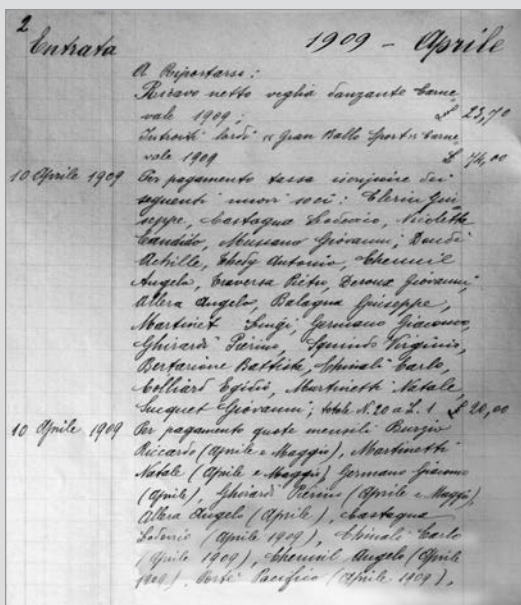 2
Entrata 1909 - Aprile
A Riportarsi:
Ricavo netto veglia danzante Carne-
vale 1909; £ 23,70
Introiti lordi "Gran Ballo Sport" Carne-
vale 1909 £ 74,00
10 Aprile 1909 Per pagamento tassa iscrizione dei
seguenti nuovi soci: Clerin Giu-
seppe, Castagna Lodovico, Nicoletta
Candido, Mussano Giovanni,
Achille, Thedy Antonio, Chenuil
Angelo, Traversa Pietro, Deroux Giovanni,
Allera Angelo, Balagna Giuseppe,
Martinet Luigi, Germano Giacomo,
Ghirardi Pierino, Squindo Virginio,
Bertarione Battista, Chinali Carlo,
Colliard Egidio, Martinetti Natale,
Sucquet Giovanni; totale N. 20 a L. 1 £ 20,00
10 Aprile 1909 Per pagamento quote mensili Burzio
Riccardo (Aprile e Maggio), Martinetti
Natale (Aprile e Maggio) Germano Giacomo
(Aprile), Ghirardi Pierino (Aprile e Maggio),
Allera Angelo (Aprile), Castagna
Lodovico (Aprile 1909), Chinali Carlo
(Aprile 1909), Chenuil Angelo (Aprile
1909), Pacifico (Aprile 1909),